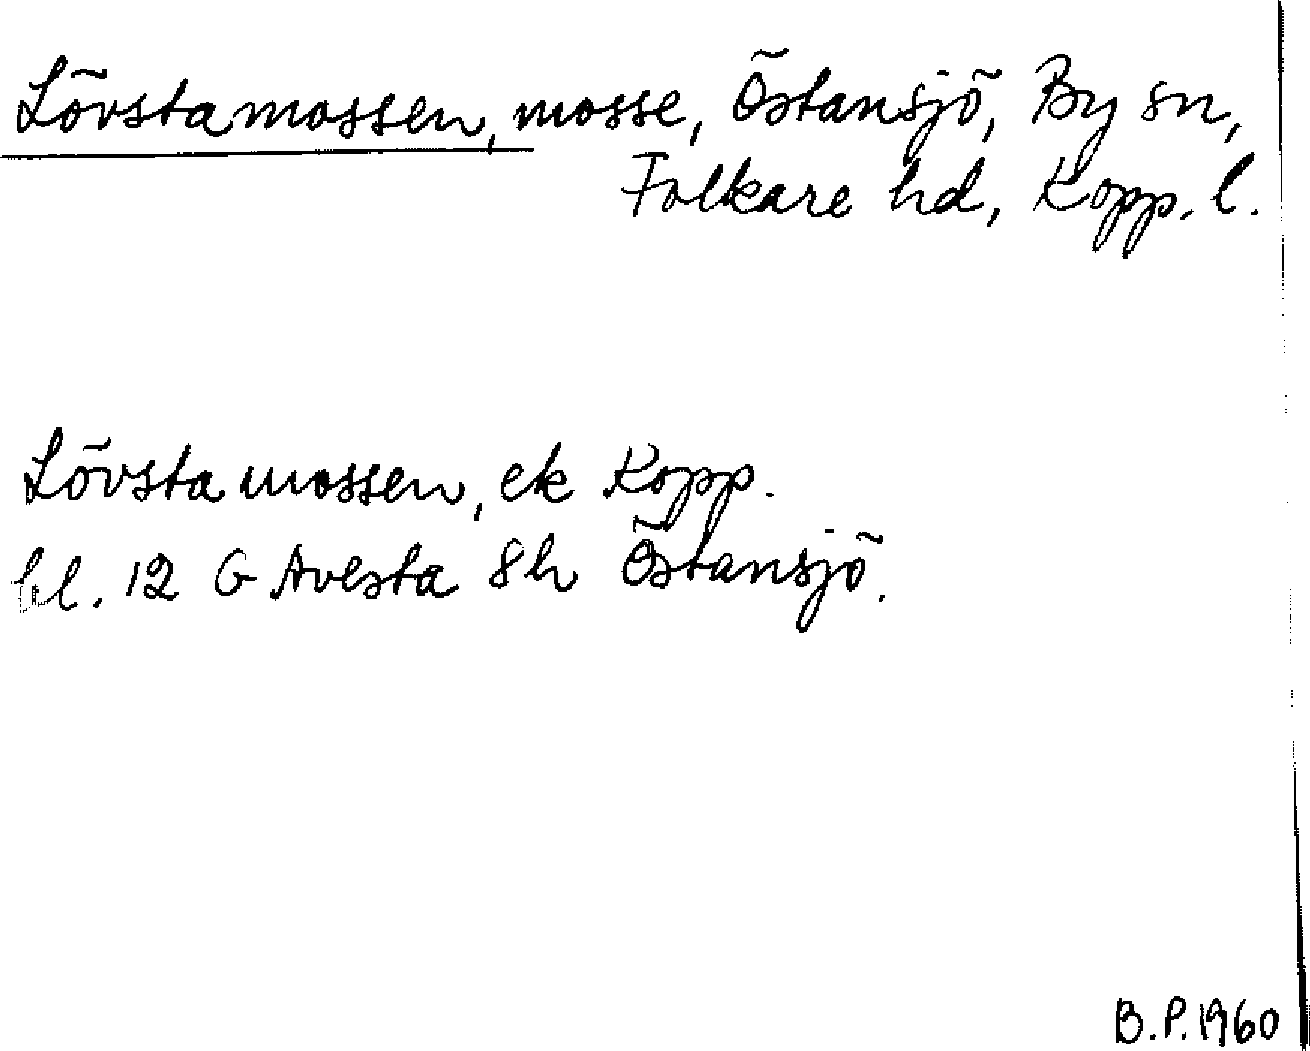 Lövstamossen, mosse, Östansjö, By sn,
Folkare hd, Kopp. l.
Lövstamossen, ek Kopp.
bl. 12 G Avesta 8h Östansjö.
B.P. 1960